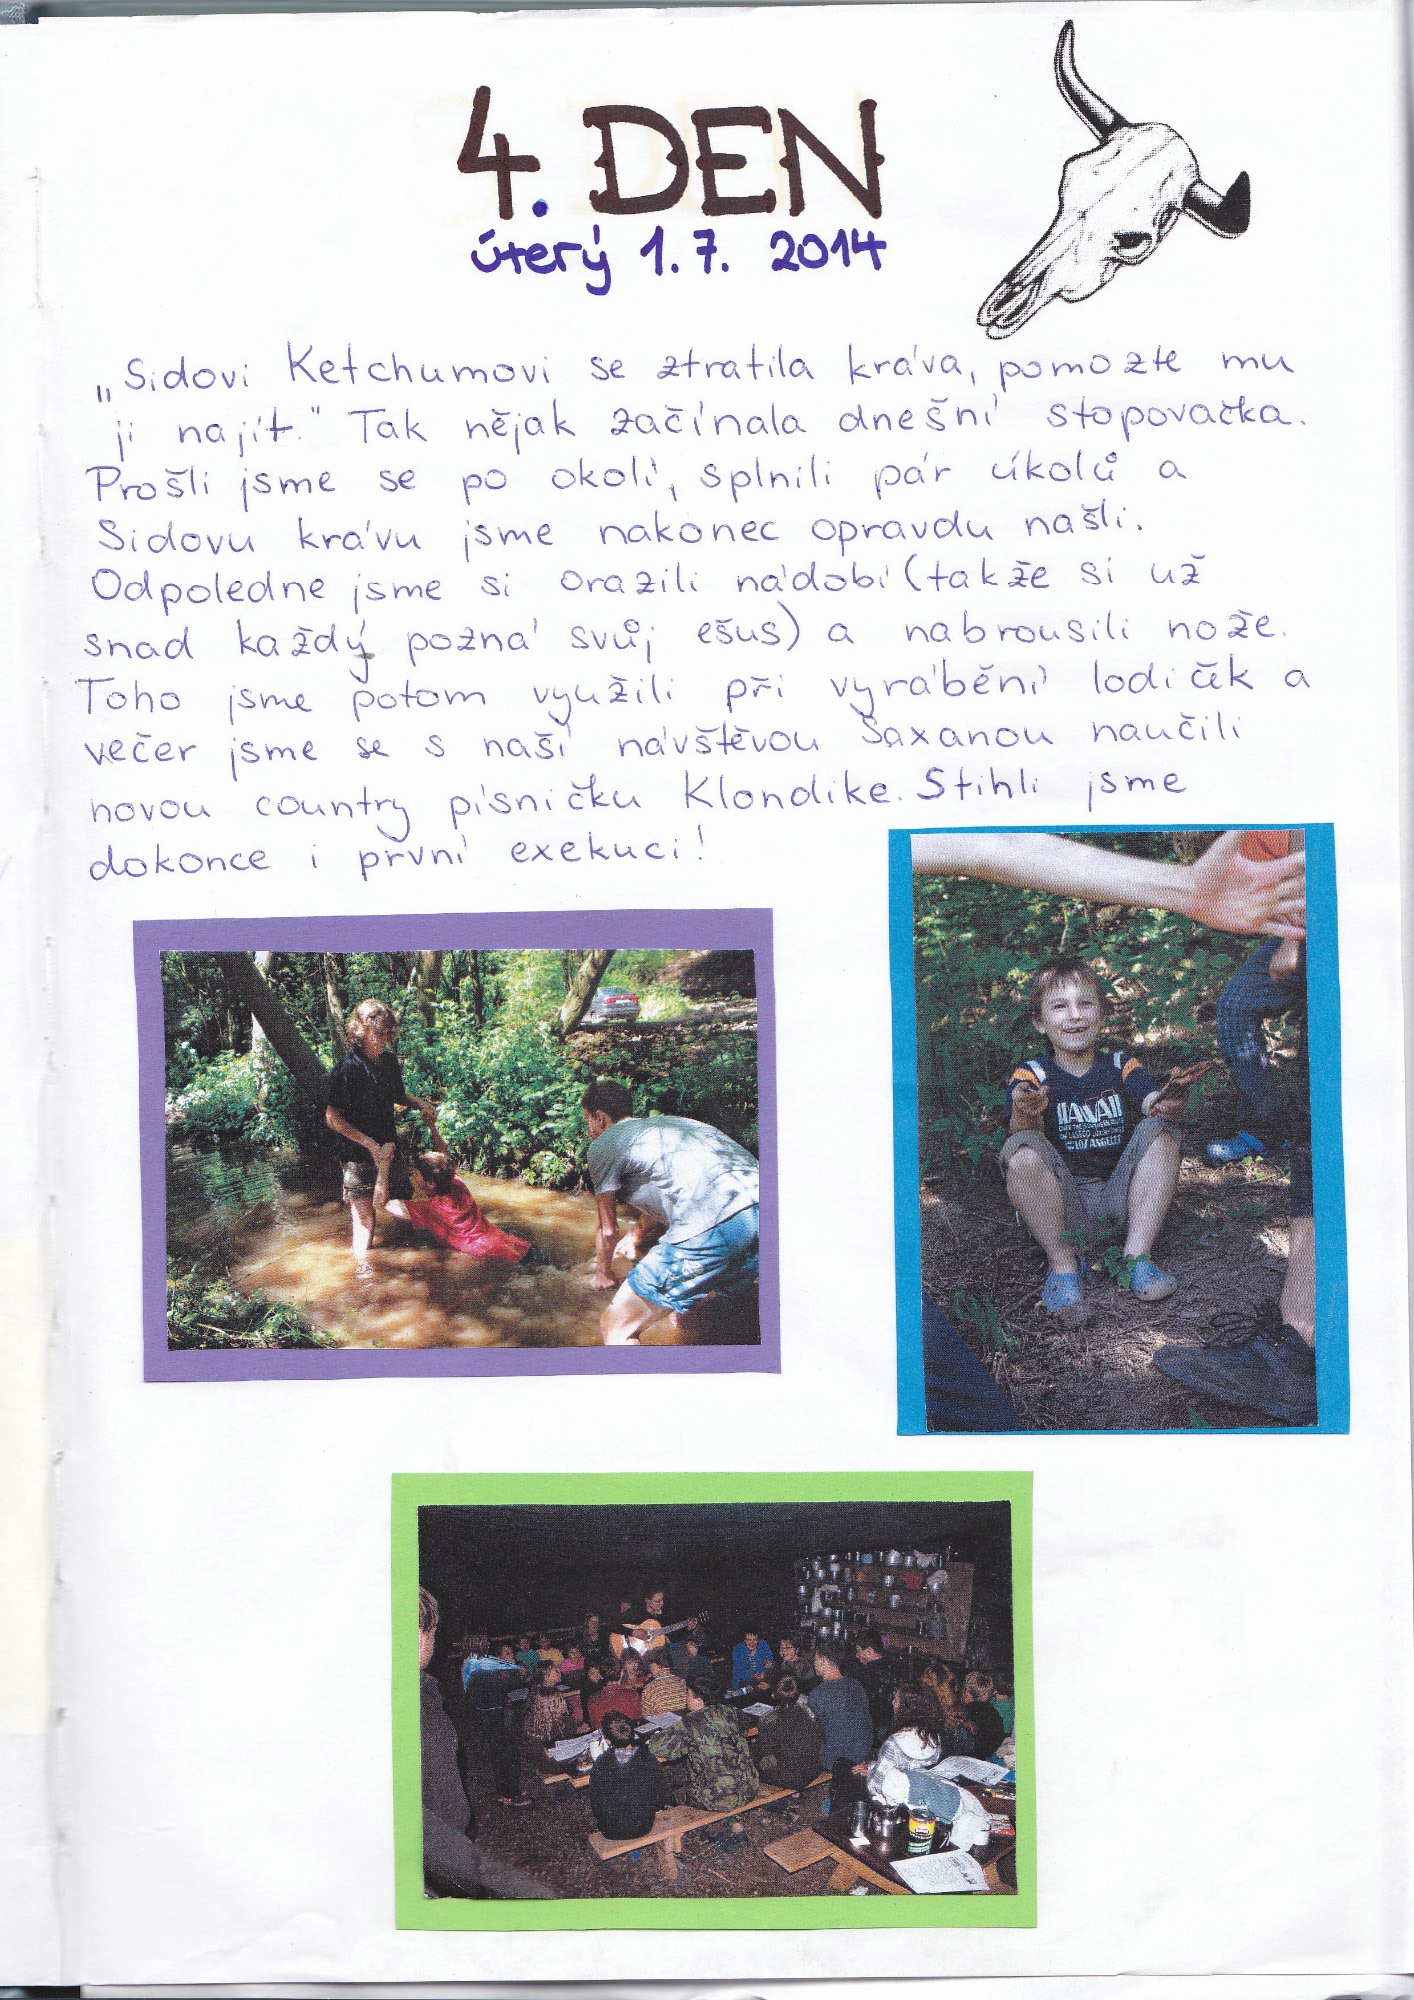 4. DEN
úterý 1.7. 2014
„Sidovi Ketchumovi se ztratila kráva, pomozte mu
ji najít." Tak nějak začínala dnešní stopovačka.
Prošli jsme se po okolí, splnili pár úkolů a
Sidovu krávu jsme nakonec opravdu našli.
Odpoledne jsme si orazili nádobí (takže si už
snad každý pozná svůj ešus) a nabrousili nože.
Toho jsme potom využili při vyrábění lodiček a
večer jsme se s naší návštěvou Saxanou naučili
novou country písničku Klondike. Stihli jsme
dokonce i první exekuci!
HAWAII
LOS ANGELES